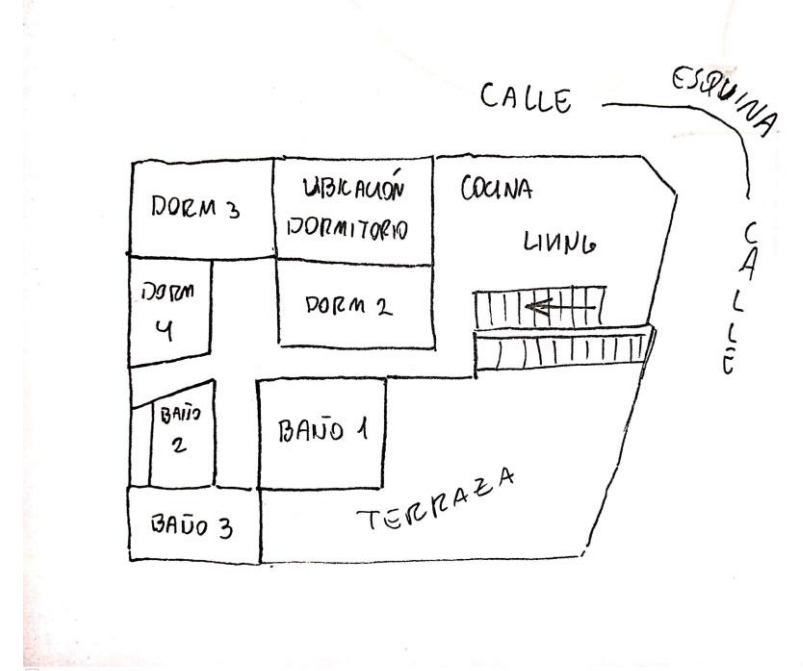 CALLE
ESQUINA
CALLE
DORM 3
UBICACIÓN
DORMITORIO
COCINA
LIVING
DORM
4
DORM 2
BAÑO
2
BAÑO 1
TERRAZA
BAÑO 3